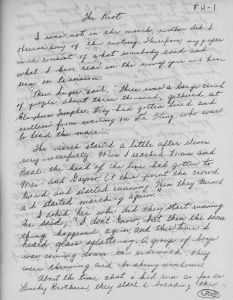 FH-1
The Riot
I was not in the march, neither did I
observe any of the rioting. Therefore, my paper
will consist of what somebody said and
what I have read in the newspaper and have
seen on television.
There was a large crowd
of people, about three thousand, gathered at
Temple. They had gotten tired and
restless from waiting on Dr. King, who was
to lead the march.
The march started a little after eleven
very peacefully. When I reached Main and
Beale, the head of the line had gotten to
Main and At this point the crowd
turned and started running. Then they turned
and started marching again.
I asked her why did they start running
She said, "I don't know," but then the same
thing happened again and this time I
heard glass splattering. A group of boys
was coming down the sidewalk, they
were throwing and breaking windows.
About the time I had run as far as
Brothers, they started breaking the